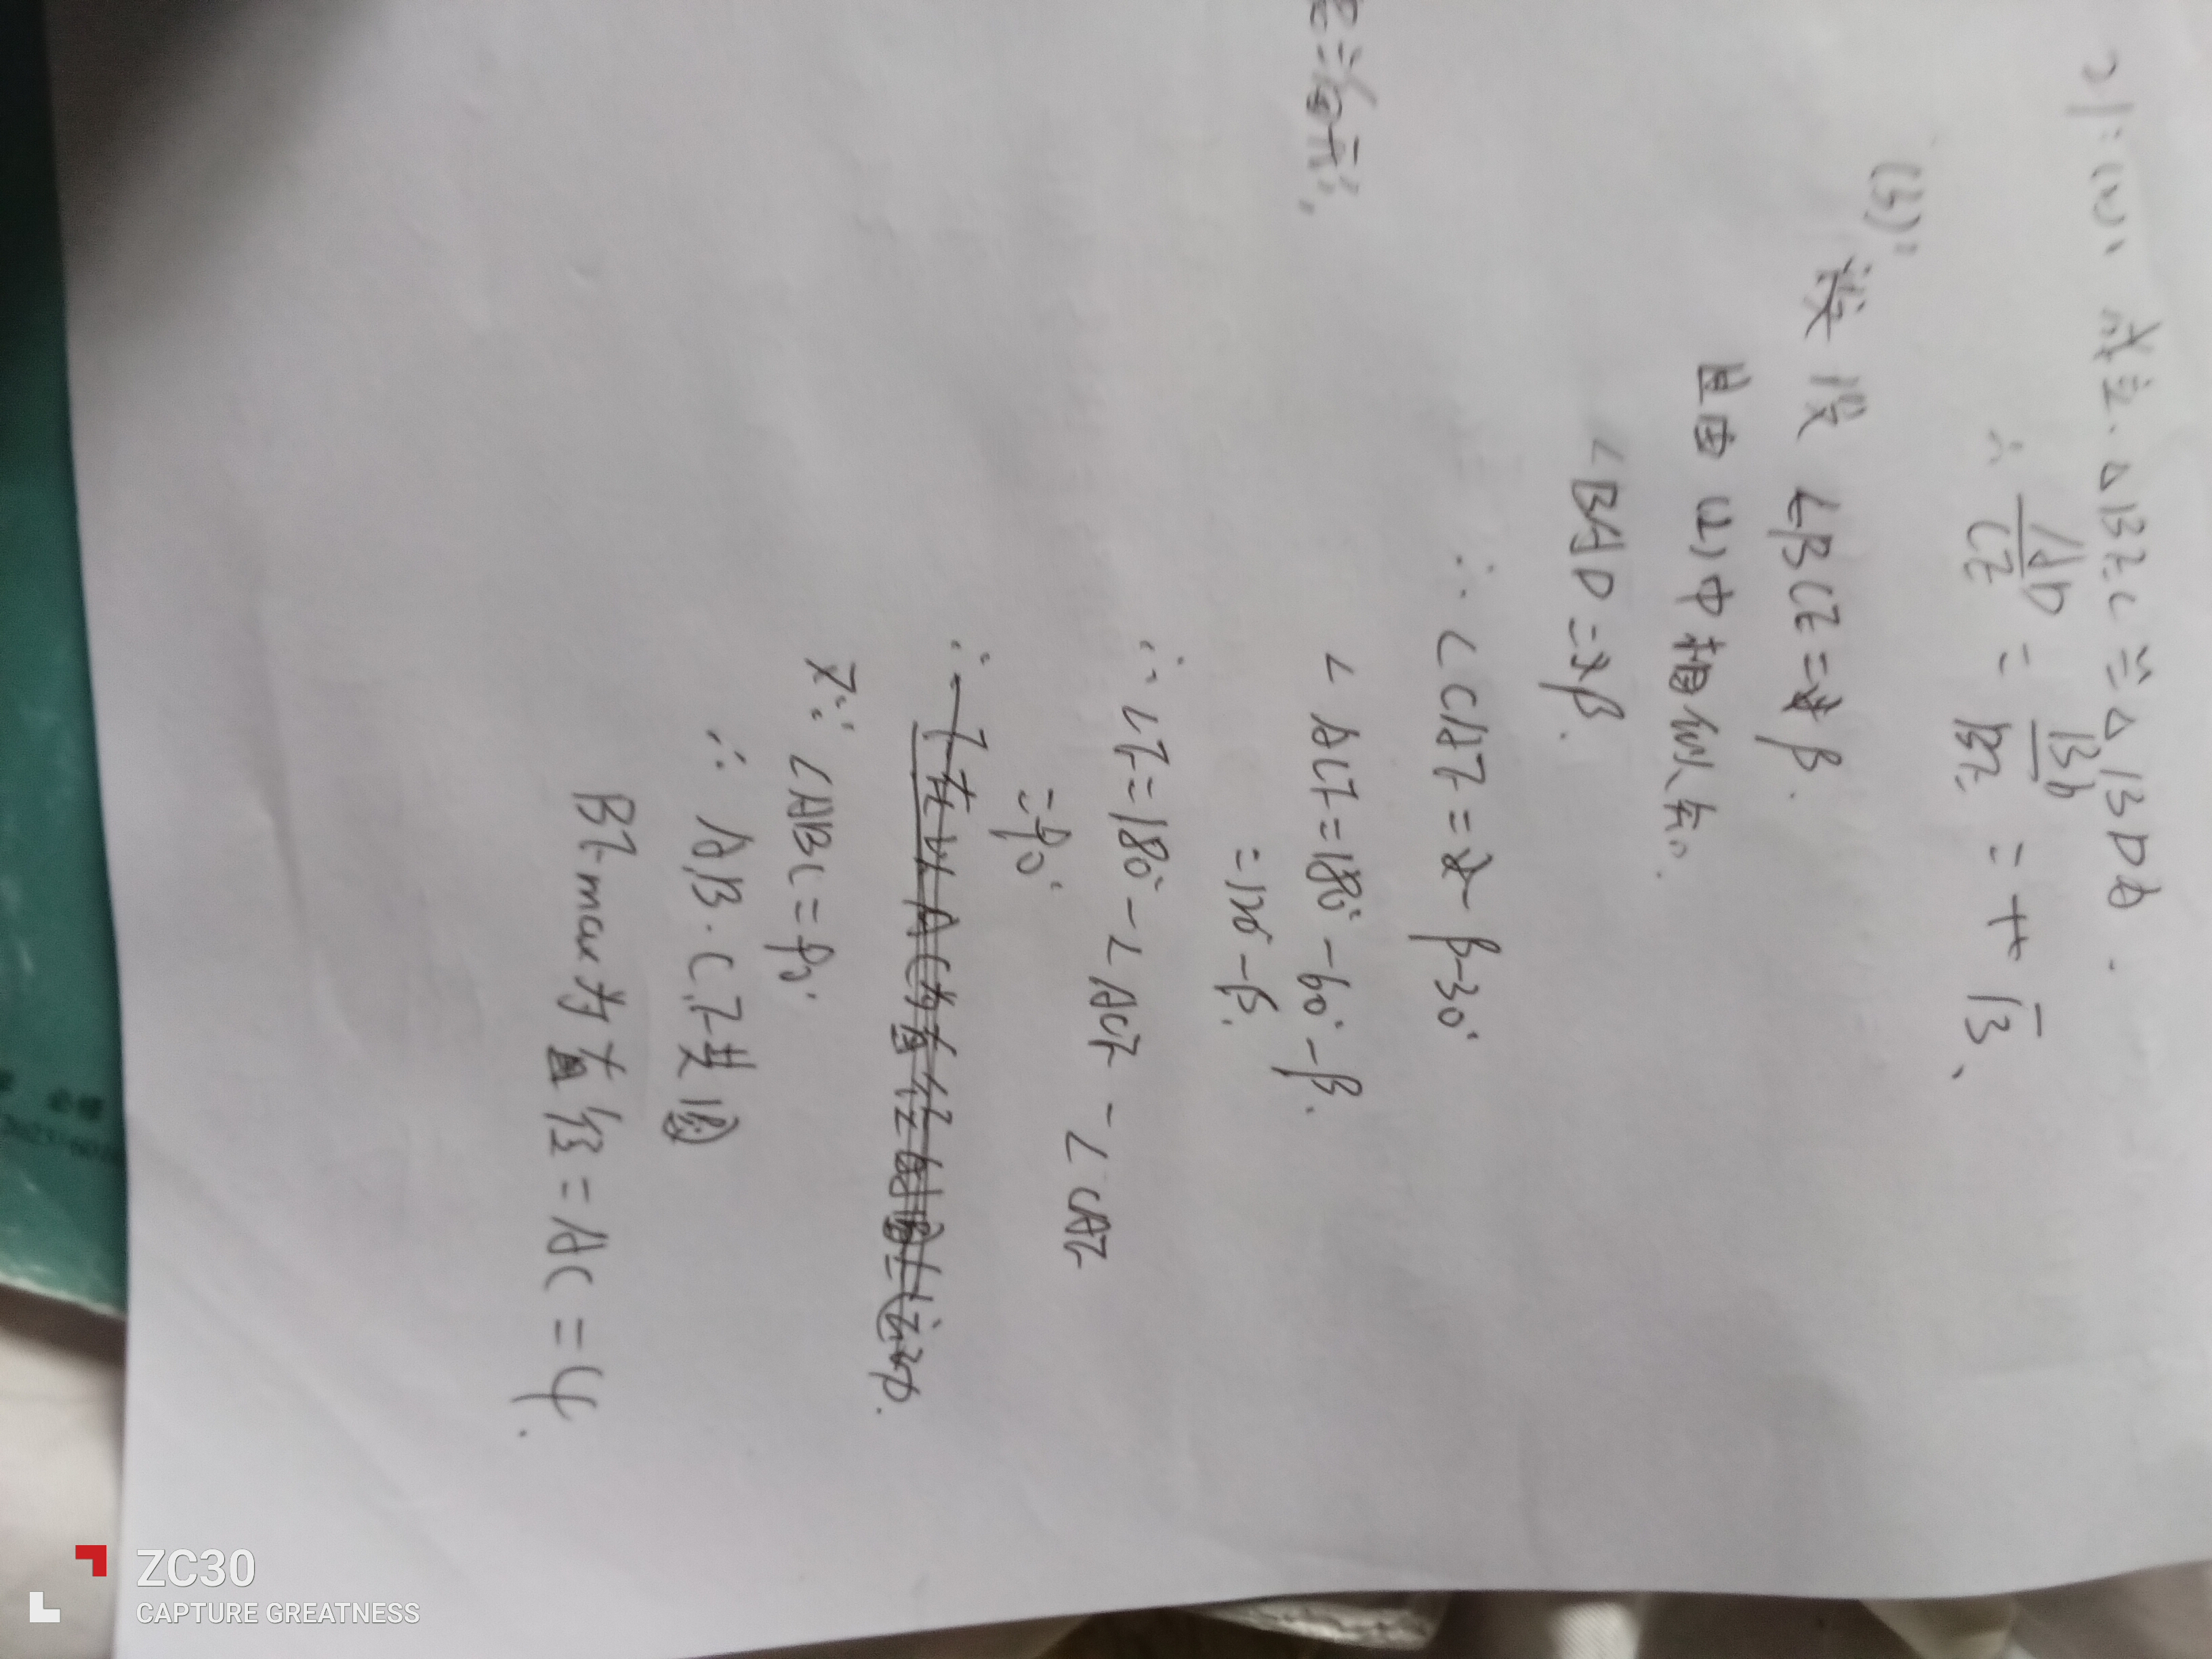 21: (2)、成立. △BEC ∽ △BDA.
∴ AD/CE = BD/BE = √3、
(3): 设 ∠BCE = β.
且由 (2) 中相似知.
∠BAD = β.
∴ ∠CAF = β-30°
∠ACF = 180° - 60° - β.
= 120° - β.
∴ ∠F = 180° - ∠ACF - ∠CAF
= 90°.
∴ F在以AC为直径的圆上运动.
又∵ ∠ABC = 90°
∴ A,B.C,F共圆
BF max为直径 = AC = 4.
ZC30
CAPTURE GREATNESS